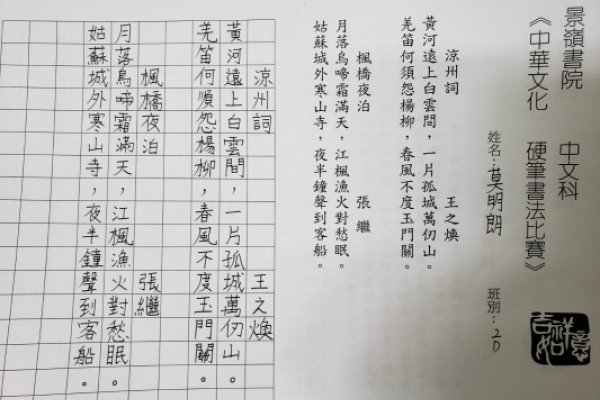 景嶺書院　中文科
《中華文化　硬筆書法比賽》
姓名：莫明朗　班別：2D
吉祥如意
涼州詞　王之煥
黃河遠上白雲間，一片孤城萬仞山。
羌笛何須怨楊柳，春風不度玉門關。
楓橋夜泊　張繼
月落烏啼霜滿天，江楓漁火對愁眠。
姑蘇城外寒山寺，夜半鐘聲到客船。
涼州詞　王之煥
黃河遠上白雲間，一片孤城萬仞山。
羌笛何須怨楊柳，春風不度玉門關。
楓橋夜泊　張繼
月落烏啼霜滿天，江楓漁火對愁眠。
姑蘇城外寒山寺，夜半鐘聲到客船。